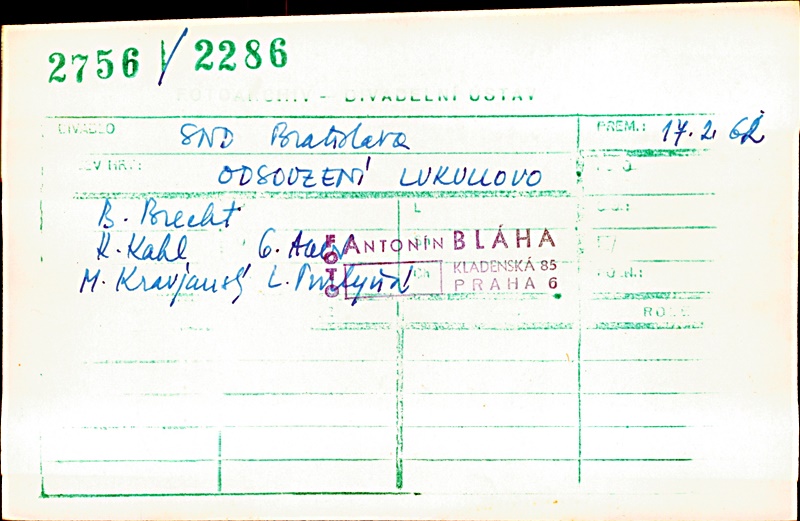 2756 / 2286
FOTOARCHIV - DIVADELNÍ ÚSTAV
DIVADLO SND Bratislava PREM.: 17.2.62
ODSOUZENÍ LUKULLOVO
B. Brecht
K. Kahl G.
M. Kravjanský L.
FOTO ANTONÍN BLÁHA
KLADENSKÁ 85
PRAHA 6